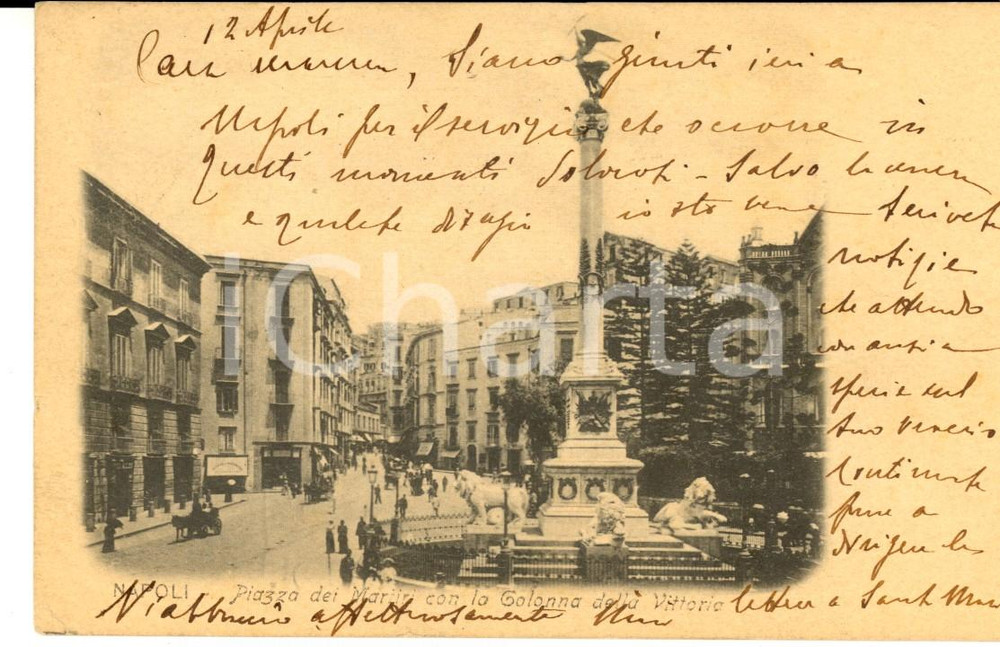 12 Aprile
Cara mamma, Siamo giunti ieri a
Napoli per il servizio che occorre in
questi momenti dolorosi - Salvo la
e qualche disagio io sto bene Scrivete
notizie
che attendo
con ansia
specie sul
tuo
Continuate
pure a
dirigere le
lettere a Sant
NAPOLI - Piazza dei Martiri con la Colonna della Vittoria
Vi abbraccio affettuosamente
iCharta